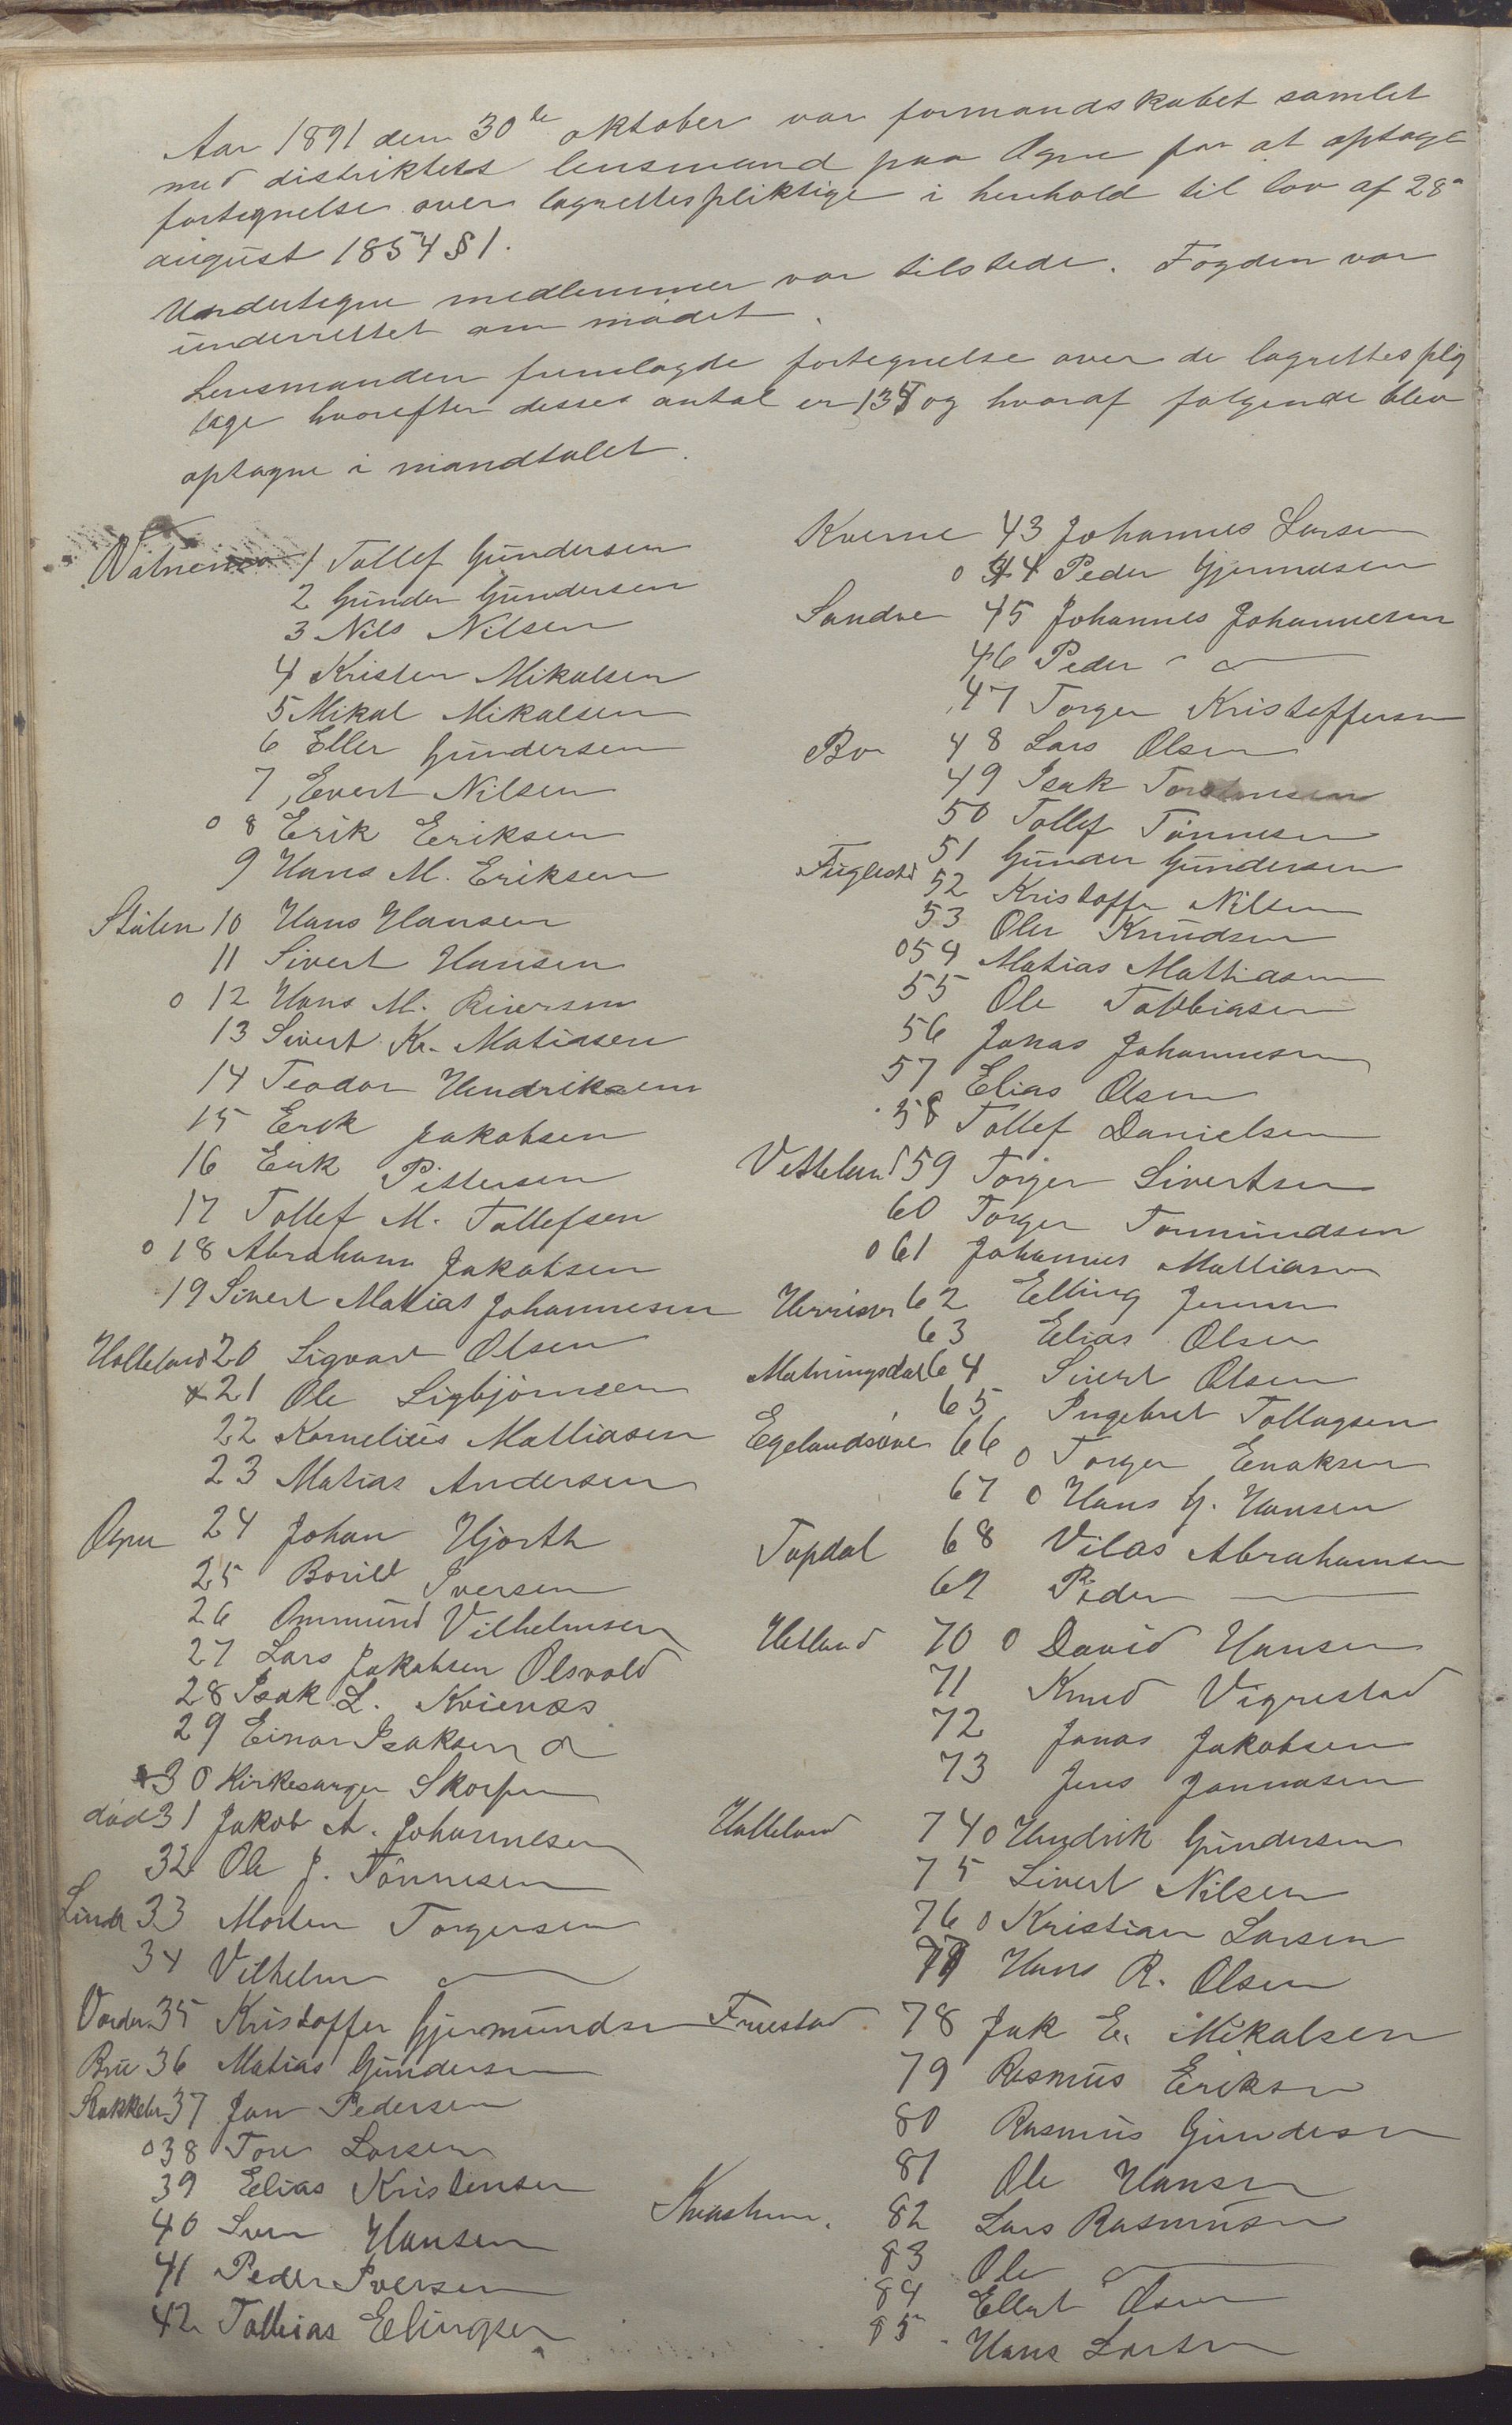 Aar 1891 den 30te oktober var formandskabet samlet
med distriktets lensmand paa Ogne for at optage
fortegnelse over lagrettespliktige i henhold til lov af 28de
august 1854 § 1.
Undertegne medlemmer var tilstede. Fogden var
underrettet om mødet.
Lensmanden fremlagde fortegnelse over de lagrettesplig
tige hvorefter desses antal er 135 og hvoraf følgende blev
optagne i mandtalet.
Watne 1 Tollef Gundersen
2 Gunder Gundersen
3 Nils Nilsen
4 Kristen Mikalsen
5 Mikal Mikalsen
6 Eller Gundersen
7 Evert Nilsen
o 8 Erik Eriksen
9 Hans M. Eriksen
Stølen 10 Hans Hansen
11 Sivert Hansen
o 12 Hans M. Reiersen
13 Sivert Kr. Matiasen
14 Teodor Hendriksen
15 Erik Jakobsen
16 Erik Pettersen
17 Tollef M. Tollefsen
o 18 Abraham Jakobsen
19 Sivert Matias Johannesen
Holleland 20 Sigvart Olsen
x 21 Ole Sigbjørnsen
22 Kornelius Mattiasen
23 Matias Andersen
Ogne 24 Johan Hjorth
25 Borild Iversen
26 Ommund Vilhelmsen
27 Lars Jakobsen Olsvold
28 Isak L. Kvienæs
29 Einar Isaksen
30 Kirkesanger Skorpen
død 31 Jakob A. Johannesen
32 Ole J. Tønnesen
Linde 33 Morten Torgersen
34 Vilhelm —
35 Kristoffer Gjermundsen
Bru 36 Matias Gundersen
37 Jan Pedersen
o 38 Tore Larsen
39 Elias Kristensen
40 Sven Hansen
41 Peder Iversen
42 Tobias Elingsen
Kverne 43 Johannes Larsen
o 44 Peder Gjermdsen
Sandve 45 Johannes Johannesen
46 Peder —
47 Torger Kristoffersen
Bø 48 Lars Olsen
49 Isak
50 Tollef Tønnesen
Fuglestd 51 Gunder Gundersen
52 Kristoffer Nilsen
53 Oler Knudsen
o 54 Matias Mattiasen
55 Ole Tobbiasen
56 Jonas Johannesen
57 Elias Olsen
58 Tollef Danielsen
Vetteland 59 Torger Sivertsen
60 Torger Tormundsen
o 61 Johannes Mattiasen
62 Elling Jensen
63 Elias Olsen
Matningsdal 64 Sivert Olsen
65 Ingebret Tollagsen
Egelandsøne 66 o Torger Enoksen
67 o Hans G. Hansen
Topdal 68 Vilas Abrahamsen
69 Peder —
Hetland 70 o David Hansen
71 Knud Vigrestad
72 Jonas Jakobsen
73 Jens Jonnasen
Holleland 74 o Hendrik Gundersen
75 Sivert Nilsen
76 o Kristian Larsen
77 Hans R. Olsen
Fruestad 78 Jak E. Mikalsen
79 Rasmus Eriksen
80 Rasmus Gundersen
81 Ole Hansen
82 Lars Rasmusen
83 Ole —
84 Ellert Olsen
85 Hans Larsen